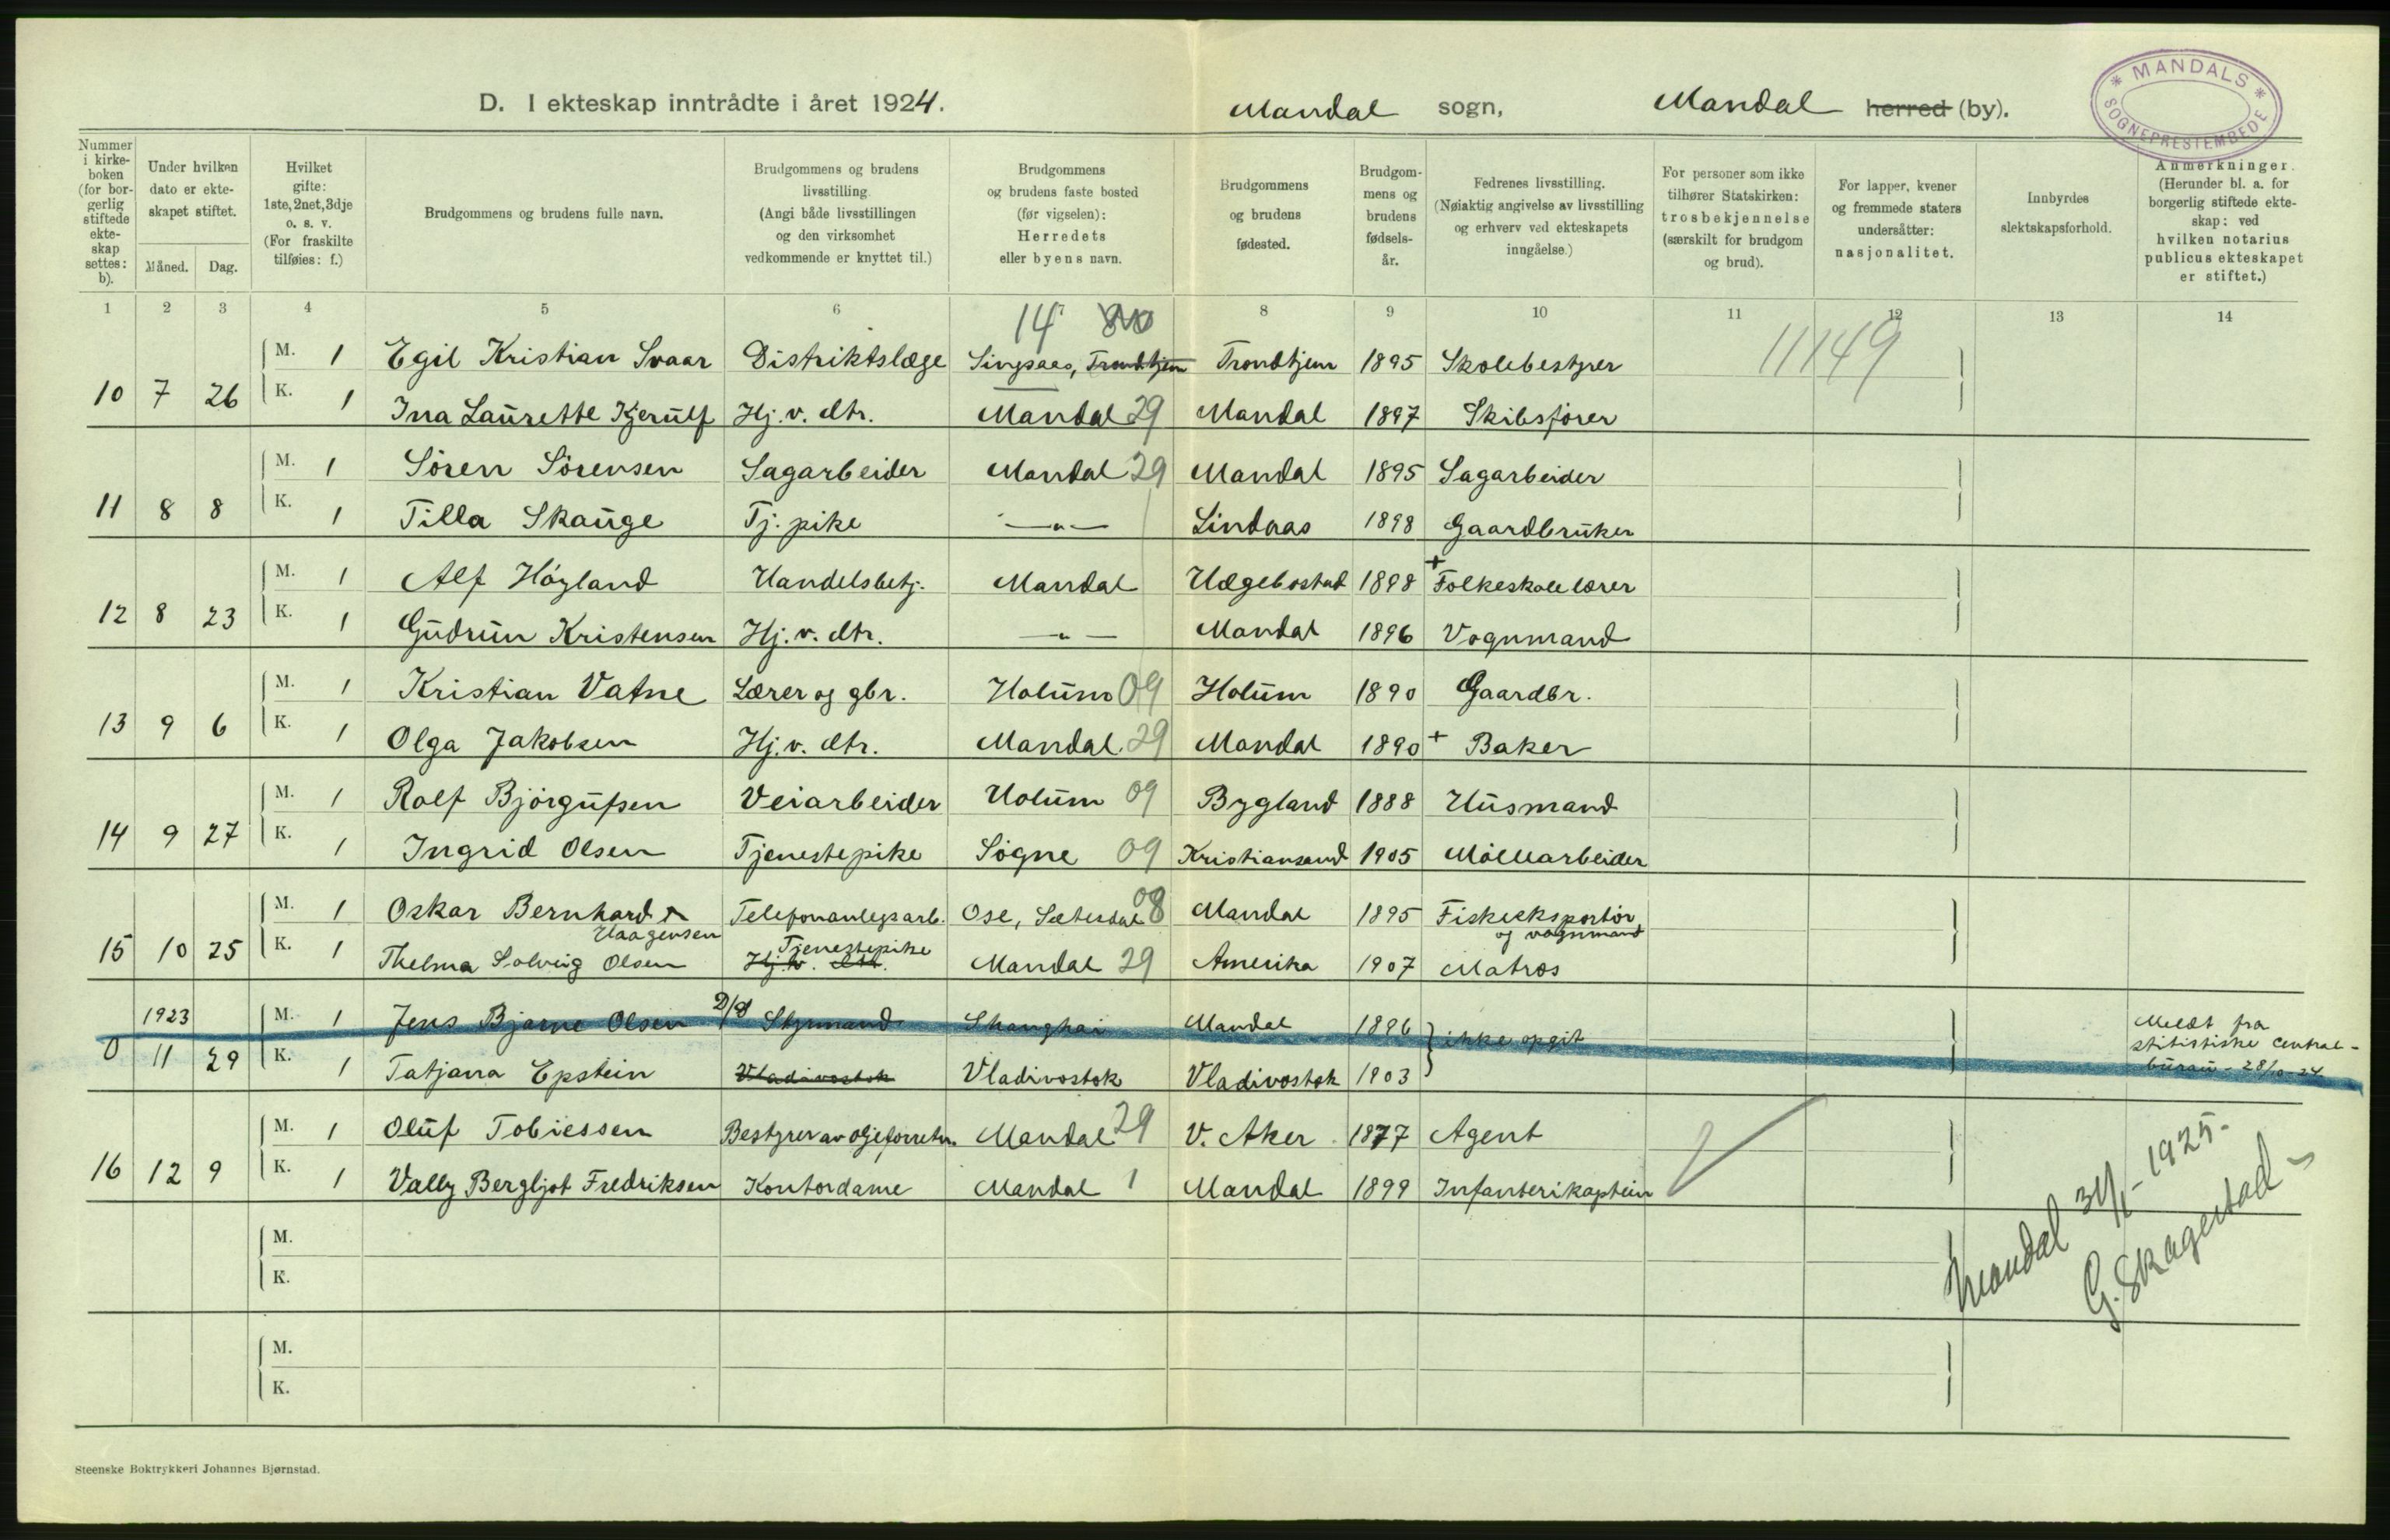 D. I ekteskap inntrådte i året 1924. Mandal sogn, Mandal herred (by).
* MANDALS * SOGNEPRESTEMBEDE
Nummer i kirkeboken (for borgerlig stiftede ekteskap settes: b).
Under hvilken dato er ekteskapet stiftet.
Måned. Dag.
Hvilket gifte: 1ste, 2net, 3dje o. s. v. (For fraskilte tilføies: f.)
Brudgommens og brudens fulle navn.
Brudgommens og brudens livsstilling. (Angi både livsstillingen og den virksomhet vedkommende er knyttet til.)
Brudgommens og brudens faste bosted (før vigselen): Herredets eller byens navn.
Brudgommens og brudens fødested.
Brudgommens og brudens fødselsår.
Fedrenes livsstilling. (Nøiaktig angivelse av livsstilling og erhverv ved ekteskapets inngåelse.)
For personer som ikke tilhører Statskirken: trosbekjennelse (særskilt for brudgom og brud).
For lapper, kvener og fremmede staters undersåtter: nasjonalitet.
Innbyrdes slektskapsforhold.
Anmerkninger. (Herunder bl. a. for borgerlig stiftede ekteskap: ved hvilken notarius publicus ekteskapet er stiftet.)
1 2 3 4 5 6 8 9 10 11 12 13 14
14 11149
M. 1 Egil Kristian Svaar Distriktslæge Singsaas, Trondhjem Trondhjem 1895 Skolebestyrer
10 7 26 K. 1 Ina Laurette Kjerulf Hj. v. dtr. Mandal 29 Mandal 1897 Skibsfører
M. 1 Sören Sörensen Sagarbeider Mandal 29 Mandal 1895 Sagarbeider
11 8 8 K. 1 Tilla Skauge Tj. pike —"— Lindaas 1898 Gaardbruker
M. 1 Alf Höyland Handelsbetj. Mandal Hægebostad 1898 + Folkeskolelærer
12 8 23 K. 1 Gudrun Kristensen Hj. v. dtr. —"— Mandal 1896 Vognmand
M. 1 Kristian Vatne Lærer og gbr. Holum 09 Holum 1890 Gaardbr.
13 9 6 K. 1 Olga Jakobsen Hj. v. dtr. Mandal 29 Mandal 1890 + Baker
M. 1 Rolf Björgufsen Veiarbeider Holum 09 Bygland 1888 Husmand
14 9 27 K. 1 Ingrid Olsen Tjenestepike Sögne 09 Kristiansand 1905 Möllearbeider
M. 1 Oskar Bernhard Haagensen Telefonanlegsarb. Ose, Sætesdal 08 Mandal 1895 Fiskeeksportör og vognmand
15 10 25 K. 1 Thelma Solveig Olsen Hj. v. dtr. Tjenestepike Mandal 29 Amerika 1907 Matros
1923 M. 1 Jens Bjarne Olsen Styrmand Shanghai Mandal 1896 ikke opgit
0 11 29 K. 1 Tatjana Epstein Vladivostok Vladivostok Vladivostok 1903
Meldt fra
statistiske central-
bureau - 28/10-24.
M. 1 Oluf Tobiessen Bestyrer av oljeforretn. Mandal 29 V. Aker 1877 Agent
16 12 9 K. 1 Vally Bergljot Fredriksen Kontordame Mandal 1 Mandal 1899 Infanterikaptein
M.
K.
M.
K.
Mandal 31/1-1925.
G. Skagestad
Steenske Boktrykkeri Johannes Bjørnstad.